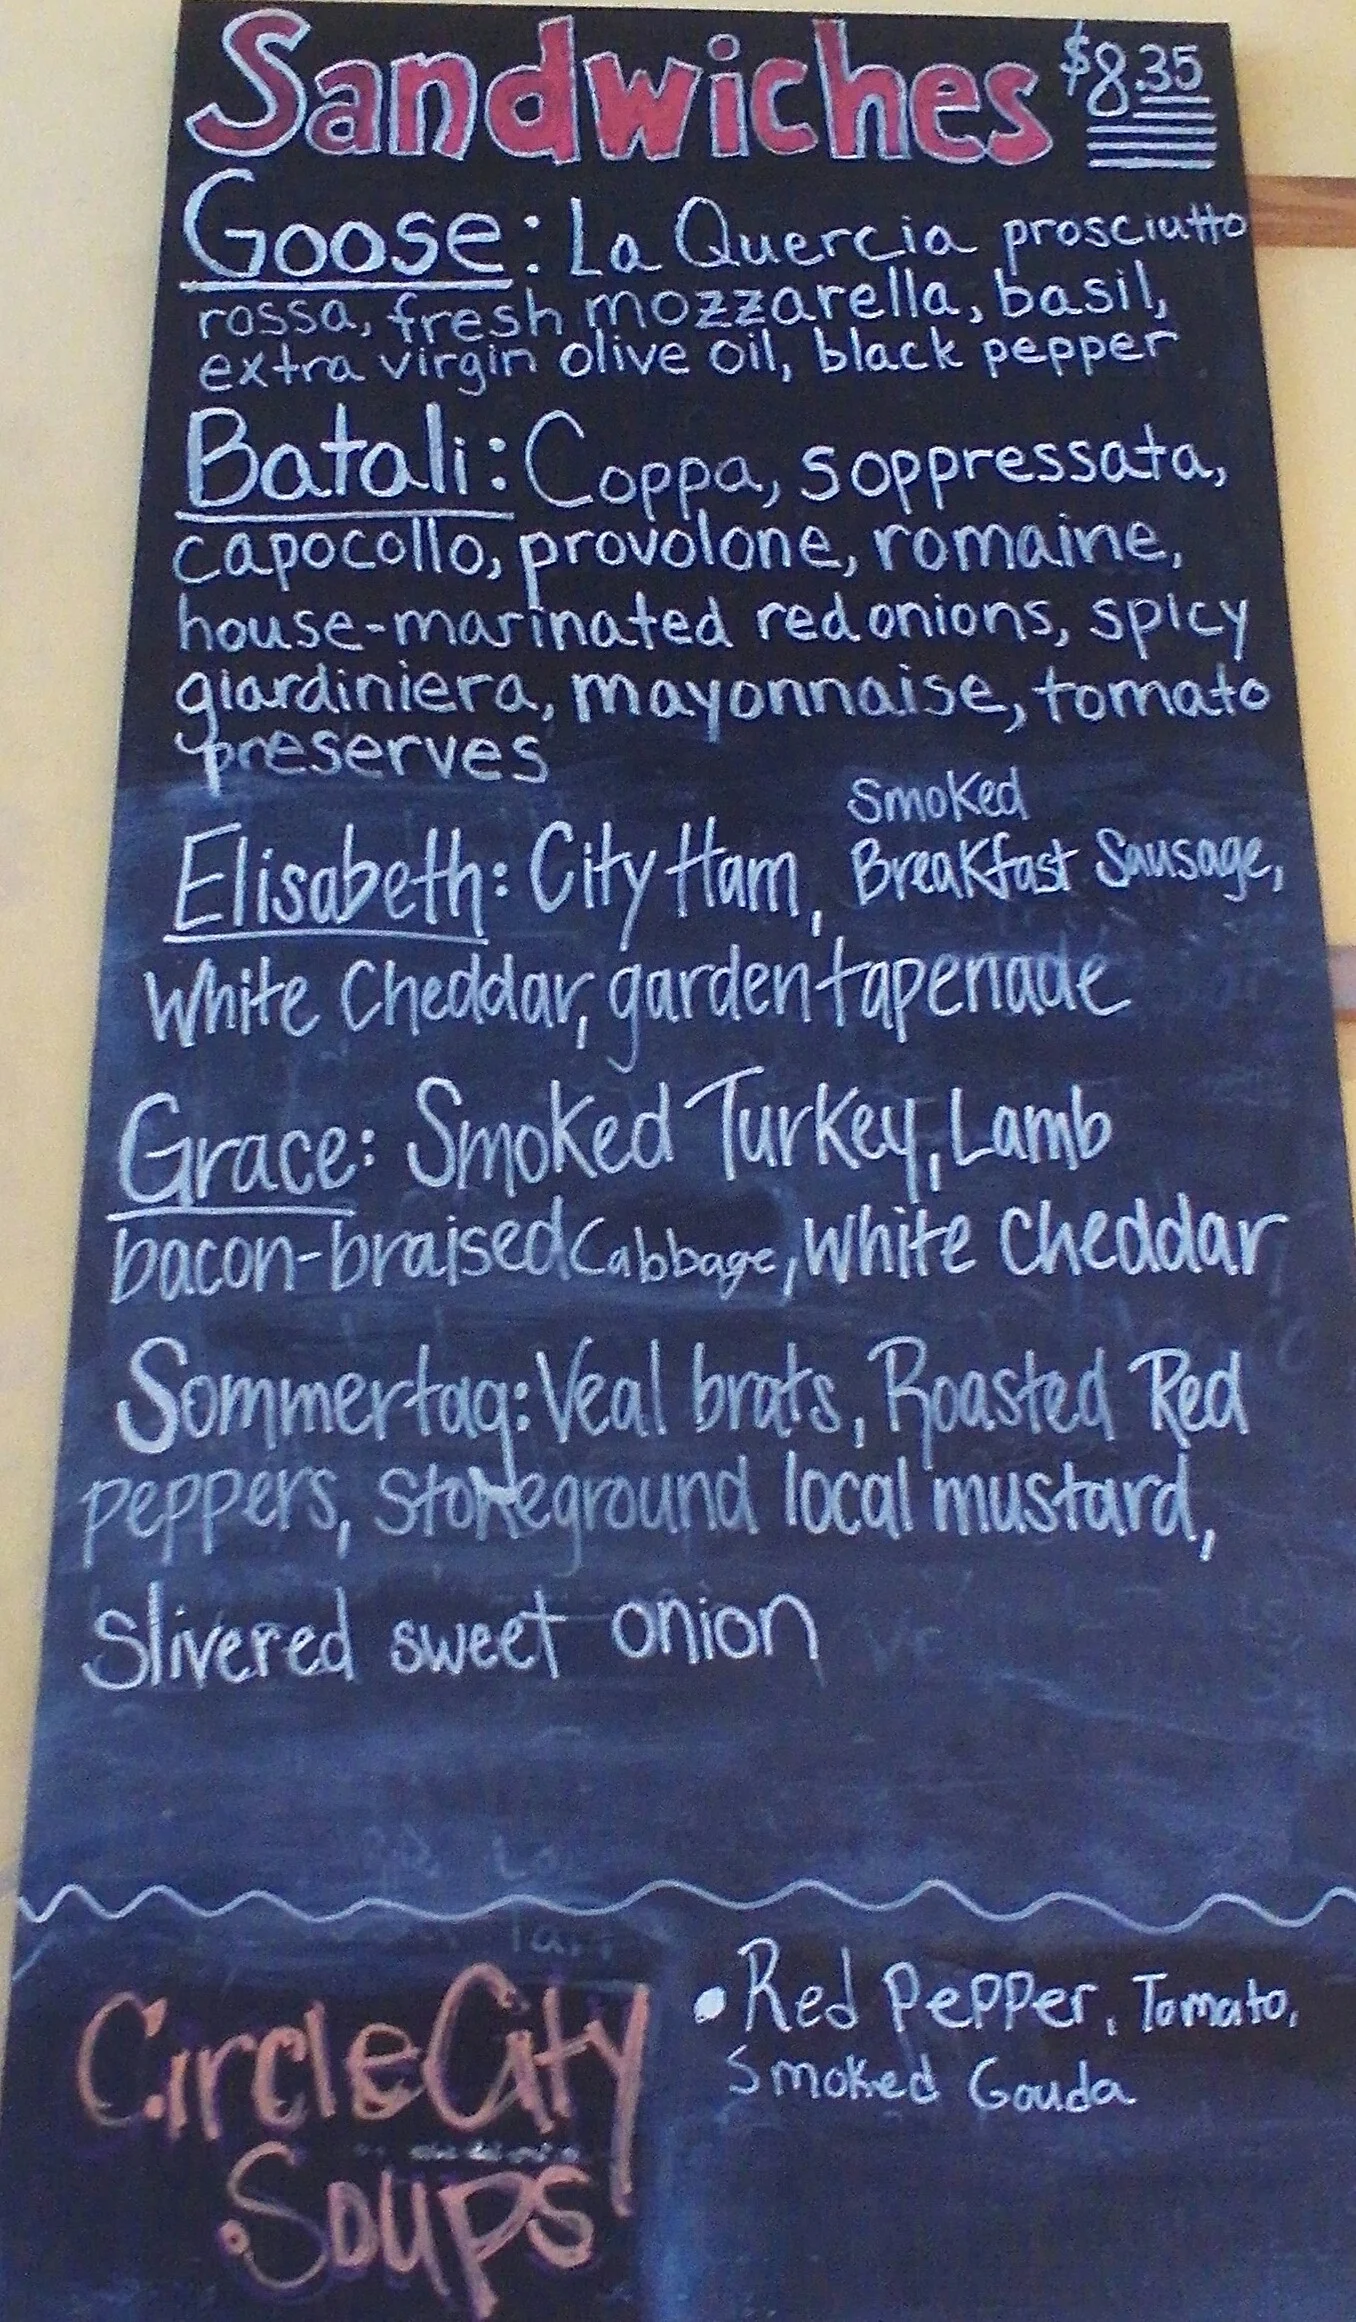 Sandwiches $8.35
Goose: La Quercia prosciutto
rossa, fresh mozzarella, basil,
extra virgin olive oil, black pepper
Batali: Coppa, soppressata,
capocollo, provolone, romaine,
house-marinated red onions, spicy
giardiniera, mayonnaise, tomato
preserves
Smoked
Elisabeth: City Ham, Breakfast Sausage,
White Cheddar, garden tapenade
Grace: Smoked Turkey, Lamb
bacon-braised Cabbage, White Cheddar
Sommertag: Veal brats, Roasted Red
peppers, Stoneground local mustard,
Slivered sweet onion
Circle City
Soups
• Red Pepper, Tomato,
Smoked Gouda